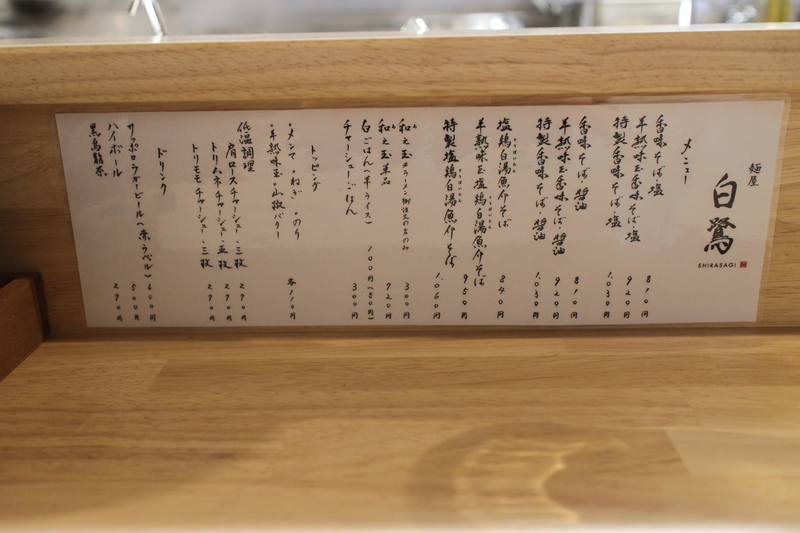 麺屋
白鷺
SHIRASAGI
メニュー
香味そば塩 810円
半熟味玉香味そば塩 920円
特製香味そば塩 1,030円
香味そば・醤油 810円
半熟味玉香味そば・醤油 920円
特製香味そば・醤油 1,030円
塩鶏白湯魚介そば 840円
半熟味玉塩鶏白湯魚介そば 950円
特製塩鶏白湯魚介そば 1,060円
和え玉※ラーメン御注文の方のみ 300円
和え玉単品 920円
白ごはん(半ライス) 100円(50円)
チャーシューごはん 300円
トッピング
・メンマ・ねぎ・のり
・半熟味玉・山椒バター 各110円
低温調理
肩ロースチャーシュー・三枚 290円
トリムネチャーシュー・五枚 290円
トリモモチャーシュー・三枚 290円
ドリンク
サッポロラガービール(赤ラベル) 600円
ハイボール 500円
黒烏龍茶 290円